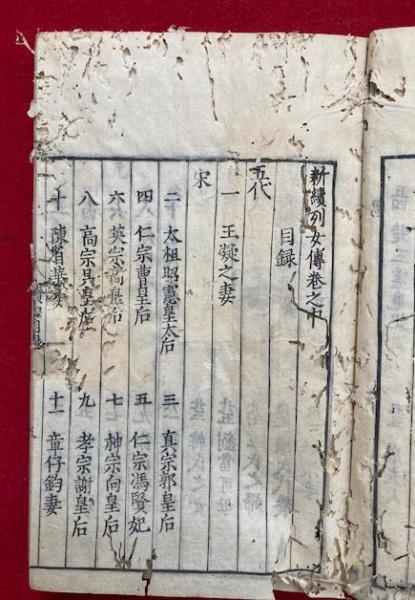 新續列女傳卷之中
目錄
五代
一 王凝之妻
宋
二 太祖昭憲皇太后 三 真宗郭皇后
四 仁宗曹皇后 五 仁宗馮賢妃
六 英宗高皇后 七 神宗向皇后
八 高宗吳皇后 九 孝宗謝皇后
十 陳省華妻 十一 章仔鈞妻